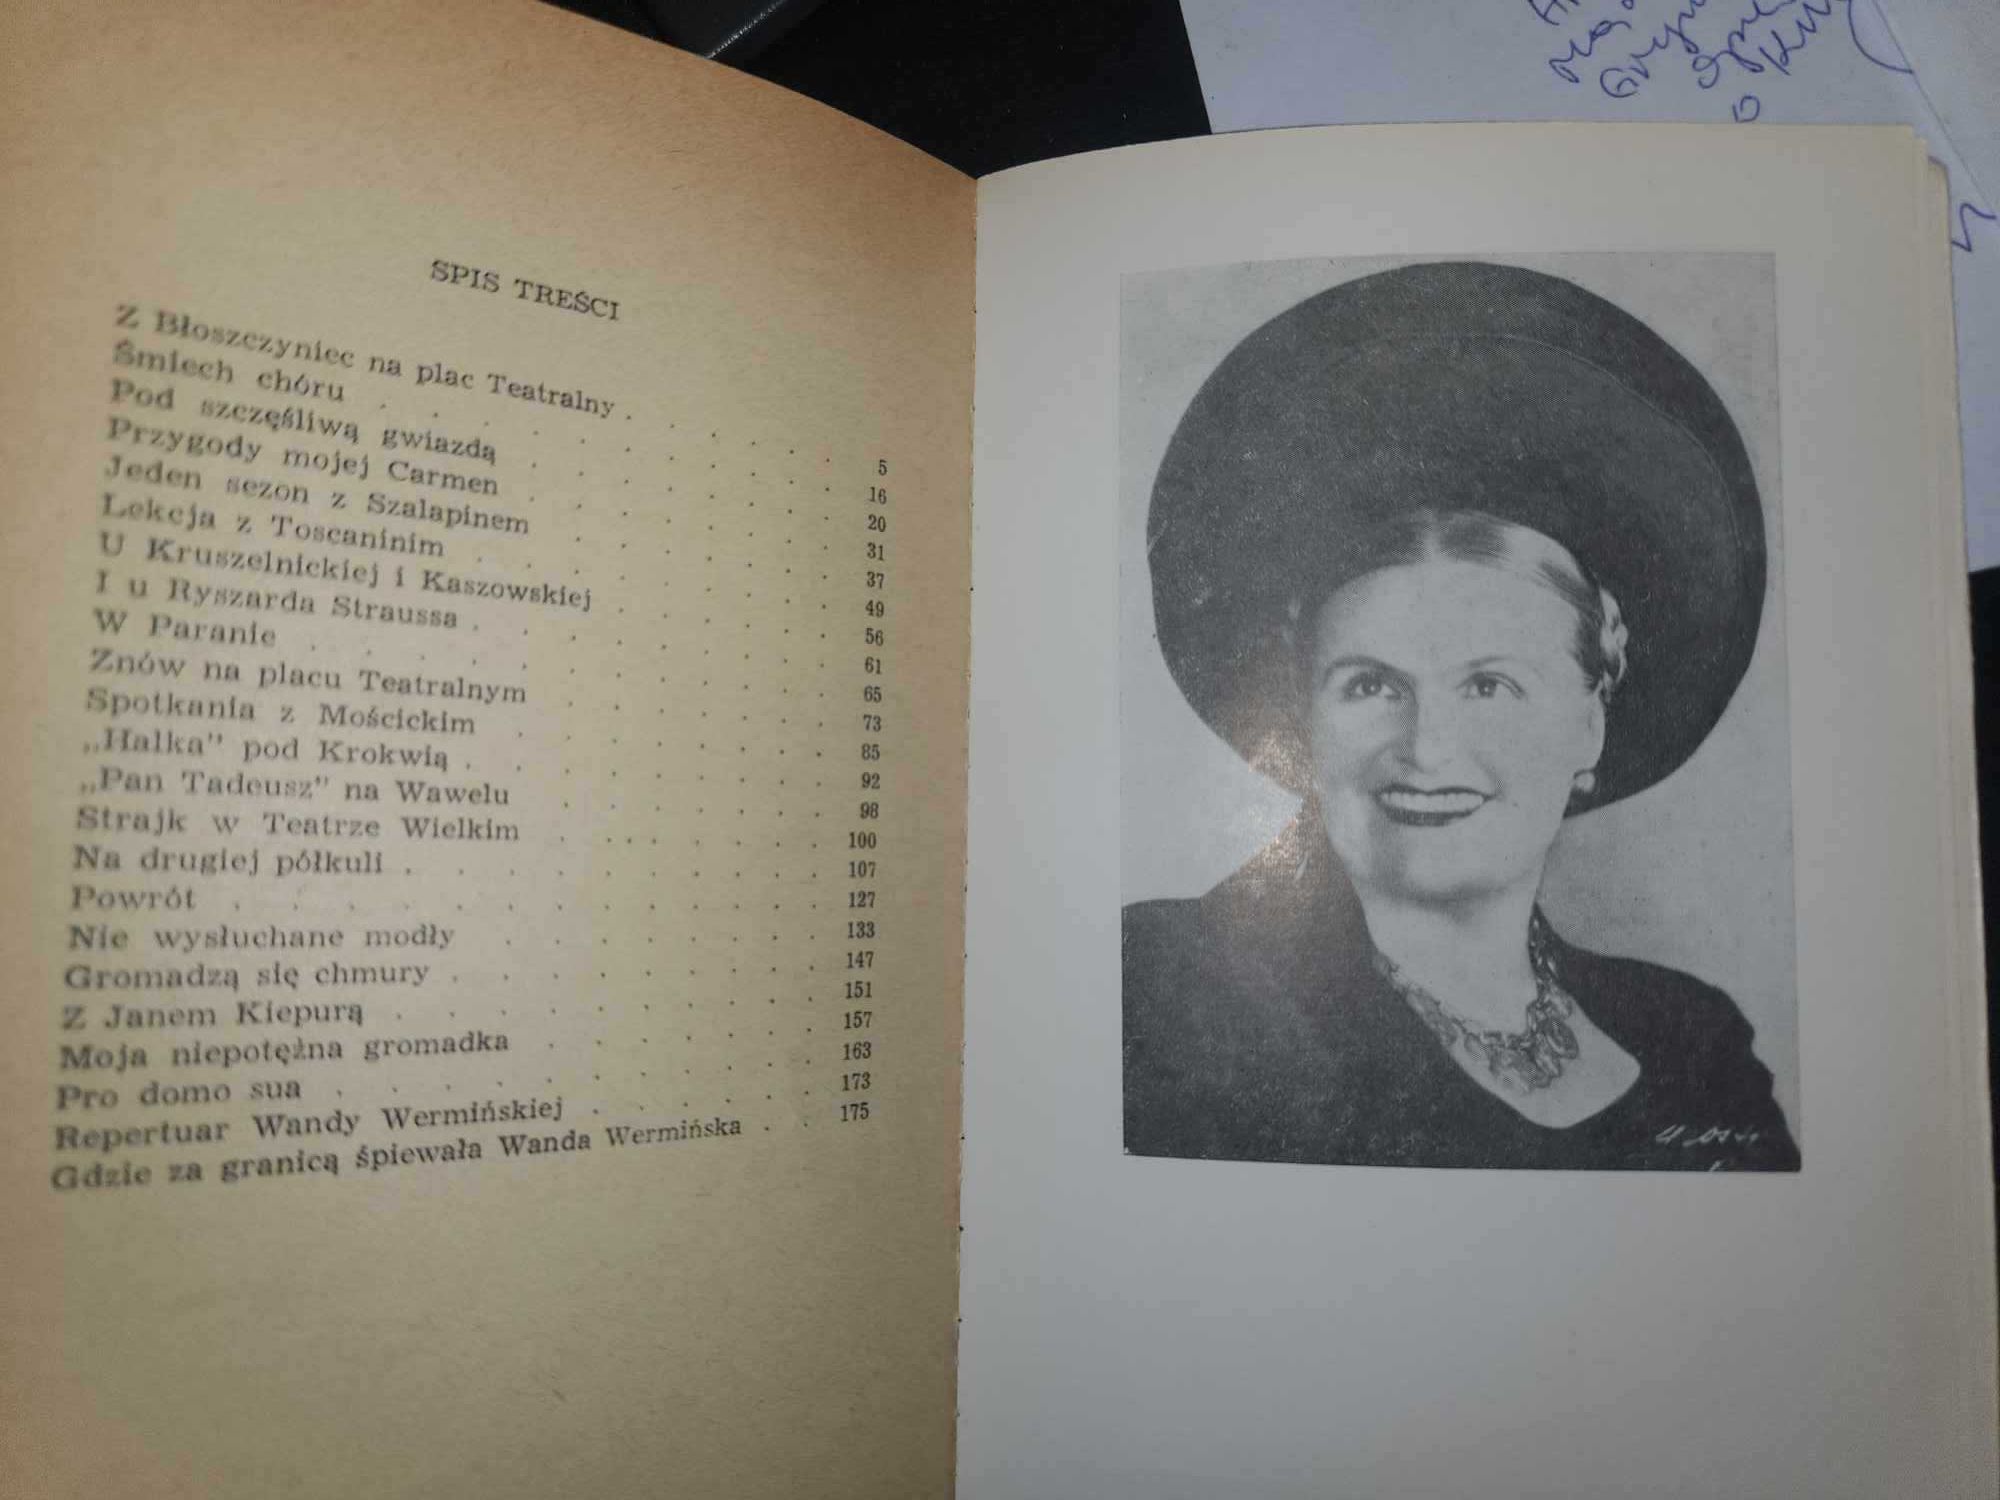 SPIS TREŚCI
Z Błoszczyniec na plac Teatralny . . . . . 5
Śmiech chóru . . . . . . . . . 16
Pod szczęśliwą gwiazdą . . . . . . . 20
Przygody mojej Carmen . . . . . . . 31
Jeden sezon z Szalapinem . . . . . . 37
Lekcja z Toscaninim . . . . . . . . 49
U Kruszelnickiej i Kaszowskiej . . . . . 56
I u Ryszarda Straussa . . . . . . . . 61
W Paranie . . . . . . . . . . 65
Znów na placu Teatralnym . . . . . . 73
Spotkania z Mościckim . . . . . . . 85
„Halka” pod Krokwią . . . . . . . . 92
„Pan Tadeusz” na Wawelu . . . . . . 98
Strajk w Teatrze Wielkim . . . . . . 100
Na drugiej półkuli . . . . . . . . . 107
Powrót . . . . . . . . . . . 127
Nie wysłuchane modły . . . . . . . 133
Gromadzą się chmury . . . . . . . . 147
Z Janem Kiepurą . . . . . . . . . 151
Moja niepotężna gromadka . . . . . . 157
Pro domo sua . . . . . . . . . 163
Repertuar Wandy Wermińskiej . . . . . 173
Gdzie za granicą śpiewała Wanda Wermińska . . 175